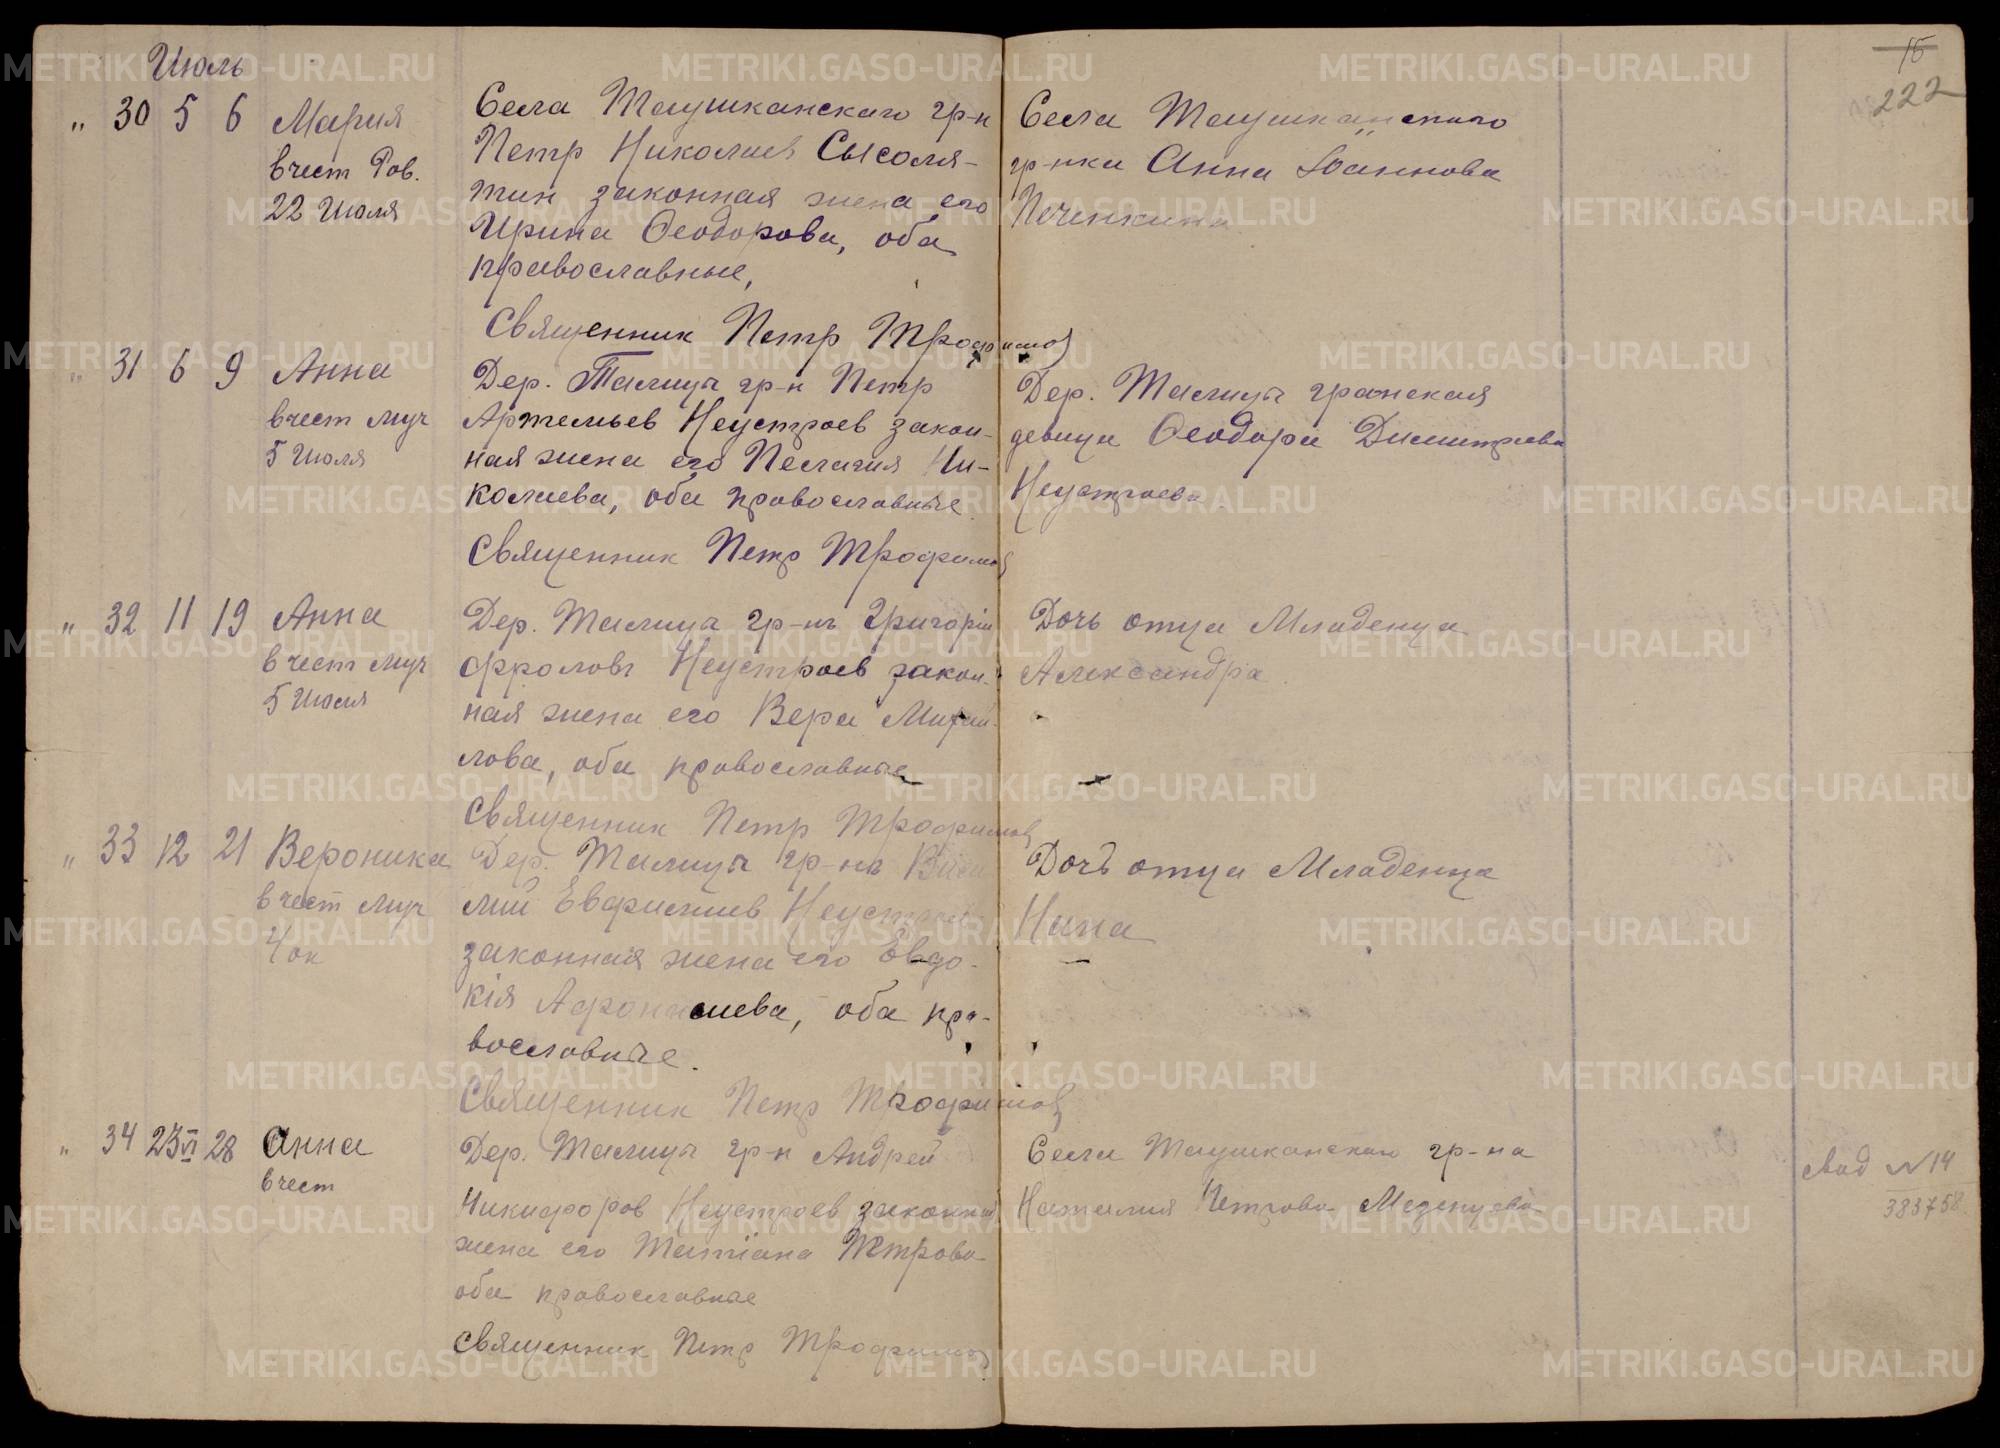 Июль
15
222
" 30 5 6 Мария
в чест Рав.
22 Июля
Села Таушканскаго гр-н
Петр Николаев Сысоля-
тин законная жена его
Ирина Феодорова, оба
православные,
Священник Петр Трофимов
Села Таушканскаго
гр-нка Анна Іоаннова
Печенкина
" 31 6 9 Анна
в чест муч
5 Июля
Дер. Талица гр-н Петр
Артемьев Неустроев закон-
ная жена его Пелагия Ни-
колаева, оба православные
Священник Петр Трофимов
Дер. Талица гражская
девица Феодора Димитриева
Неустроева
" 32 11 19 Анна
в чест муч
5 Июля
Дер. Талица гр-нъ Григорій
Фроловъ Неустроев закон-
ная жена его Вера Михай-
лова, оба православные
Священник Петр Трофимов
Дочь отца Младенца
Александра
" 33 12 21 Вероника
в чест муч
4 ок
Дер. Талица гр-нъ Васи
лий Еваристиев Неустроев
законная жена его Евдо-
кія Афонасиева, оба пра-
вославные.
Священник Петр Трофимов
Дочь отца Младенца
Нина
" 34 23 VI 28 Анна
в чест
Дер. Талица гр-н Андрей
Никифоров Неустроев законная
жена его Татіана Петрова
оба православные
Священник Петр Трофимов
Села Таушканскаго гр-на
Наталия Петрова Меденцева
свид №14
383758
METRIKI.GASO-URAL.RU